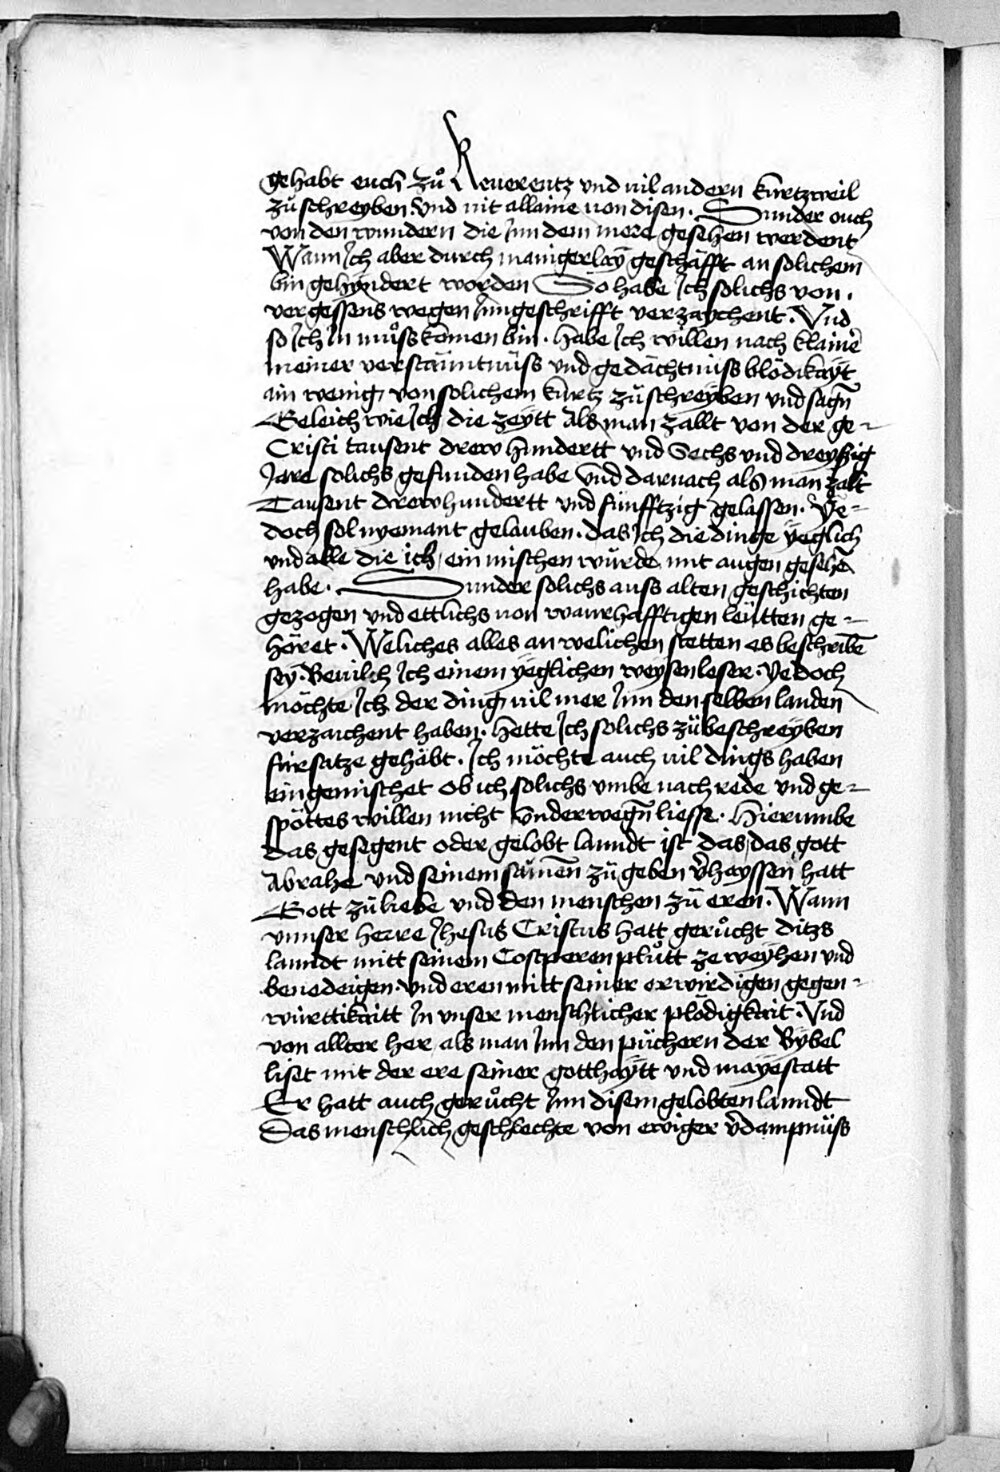 gehabt euch zů Reuerentz vnd vil andern kurtzweil
zů schreyben. Vnd nit allaine von disen. Sunder ouch
von den wundern die Jnn dem mere gesehen werdent
Wann Jch aber durch manigerlaÿ geschäfft an solichem
bin gehyndert worden So habe Jch solichs von.
vergessens wegen Jnn geschrifft verzaychent. Vnd
so Jch Jn můss komen bin. habe Jch willen nach klainē
meiner verstäntnüss vnd gedächtnüss blödikaÿt
ain wenig von solichem kurtz zů schreyben vnd sagn̄
Geleich wie Jch die zeytt Als man zallt von der ge-
Cristi tausent drew hundertt vnd Sechs vnd dreyssig
Jare solichs gefunden habe vnd darnach als man zalt
Tausent drewhundertt vnd fünfftzig gelassen. Ye-
doch sol nyemant gelauben. das Jch die dinge yeglich
vnd alle die ich ein mischen würde mit augen gesehn̄
habe. Sunder solichs auss alten geschichten
gezogen vnd ettlichs von warhafftigen leütten ge-
höret. Weliches alles an welichen stetten es beschribē
seÿ. Beuilch Jch einem yeglichen weysen leser. Yedoch
möchte Jch der ding vil mer Jnn den selben landen
verzaichent haben. hette Jch solichs zů beschreyben
fürsatze gehäbt. Jch möchte auch vil dings haben
eingemischet ob ich solichs vmbe nachrede vnd ge-
spöttes willen nicht vnderwegn̄ liesse. Hierumbe
das gesegent oder gelobt lanndt ist das das gott
Abrahe vnd seinem samen̄ zů geben v̄hayssen hatt
Gott zů liebe vnd den menschen zů eren. Wann
vnnser herre Jhesus Cristus hatt gerůcht ditzs
lanndt mitt seinem Costperen plůtt ze weyhen vnd
benedeigen vnd eren mitt seiner erwirdigen gegen-
württikaitt Jn vnser menschlicher plödigkait. Vnd
von allter her als man Jnn den püchern der Bybel
list mit der ere seiner gotthaÿtt vnd mayestatt
Er hatt auch gerůcht Jnn disem gelobten lanndt
Das menschlich geschlechte von ewiger v̄dampnüss